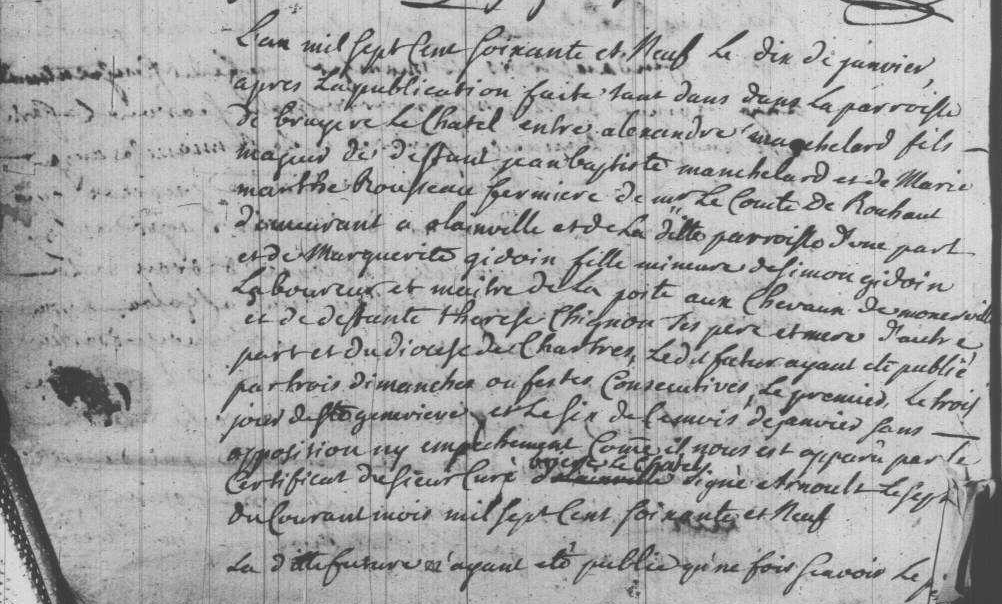 L'an mil sept Cent soixante et Neuf Le dix de janvier,
apres La publication faite tant dans dans La parroisse
de bruyere Le Chatel entre alexandre manchelard fils
majeur de deffunt jean baptiste manchelard et de Marie
marthe Rousseau fermiere de mr Le Comte De Rouhaut
demeurant a et de La ditte parroisse d'une part
et de Marguerite gidoin fille mineure de Simon gidoin
Laboureur et maitre de La poste aux Chevaux de monerville
et de deffunte therese Chignou ses pere et mere d'autre
part et du diocese de Chartres, Le dit futur ayant eté publié
par trois dimanches ou festes Consecutives, Le premier, Le trois
jour de ste genevieve et Le six de Ce mois de janvier sans
opposition ny empechement Come il nous est apparu par le
Certificat du Sieur Curé de bruyere Le Chatel signé Arnoult Le sept
du Courant mois mil sept Cent soixante et Neuf
La ditte future n'ayant eté publié qu'une fois scavoir Le